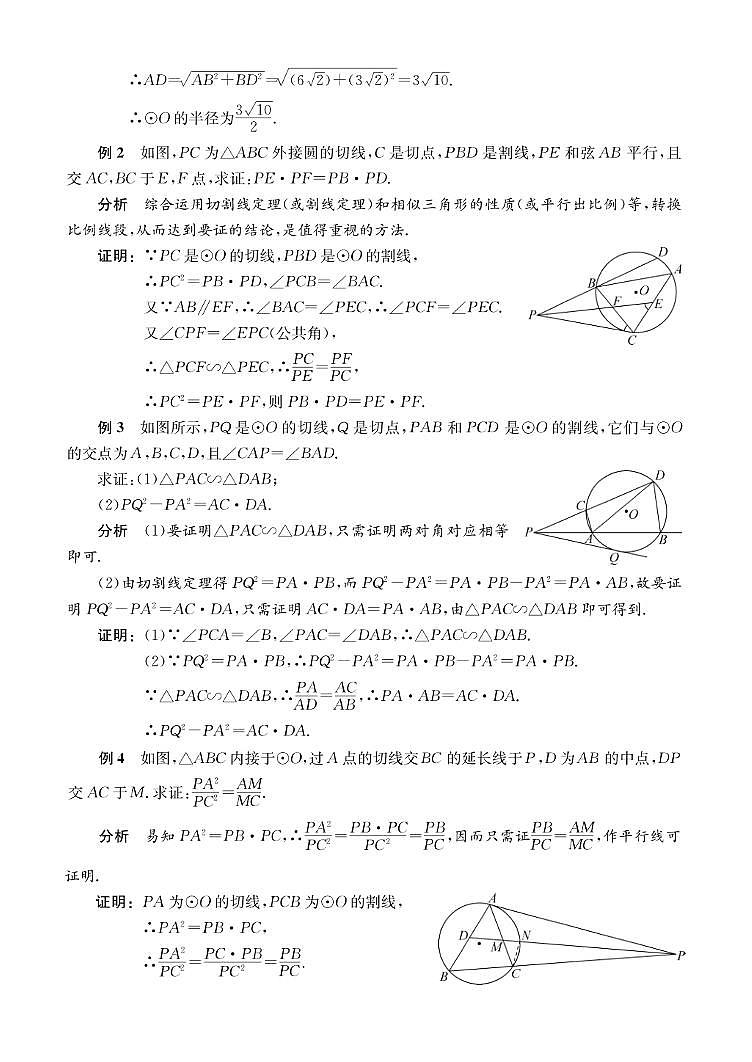 ∴AD=√(AB²+BD²)=√((6√2)+(3√2)²)=3√10.
∴⊙O的半径为3√10/2.
例2 如图,PC为△ABC外接圆的切线,C是切点,PBD是割线,PE和弦AB平行,且
交AC,BC于E,F点,求证:PE·PF=PB·PD.
分析 综合运用切割线定理(或割线定理)和相似三角形的性质(或平行出比例)等,转换
比例线段,从而达到要证的结论,是值得重视的方法.
证明:∵PC是⊙O的切线,PBD是⊙O的割线,
∴PC²=PB·PD,∠PCB=∠BAC.
又∵AB∥EF,∴∠BAC=∠PEC,∴∠PCF=∠PEC.
又∠CPF=∠EPC(公共角),
∴△PCF∽△PEC,∴PC/PE=PF/PC,
∴PC²=PE·PF,则PB·PD=PE·PF.
D
A
B
O
F
E
P
C
例3 如图所示,PQ是⊙O的切线,Q是切点,PAB和PCD是⊙O的割线,它们与⊙O
的交点为A,B,C,D,且∠CAP=∠BAD.
求证:(1)△PAC∽△DAB;
(2)PQ²-PA²=AC·DA.
分析 (1)要证明△PAC∽△DAB,只需证明两对角对应相等
即可.
D
C
O
P
A
B
Q
(2)由切割线定理得PQ²=PA·PB,而PQ²-PA²=PA·PB-PA²=PA·AB,故要证
明PQ²-PA²=AC·DA,只需证明AC·DA=PA·AB,由△PAC∽△DAB即可得到.
证明:(1)∵∠PCA=∠B,∠PAC=∠DAB,∴△PAC∽△DAB.
(2)∵PQ²=PA·PB,∴PQ²-PA²=PA·PB-PA²=PA·PB.
∵△PAC∽△DAB,∴PA/AD=AC/AB,∴PA·AB=AC·DA.
∴PQ²-PA²=AC·DA.
例4 如图,△ABC内接于⊙O,过A点的切线交BC的延长线于P,D为AB的中点,DP
交AC于M.求证:PA²/PC²=AM/MC.
分析 易知PA²=PB·PC,∴PA²/PC²=PB·PC/PC²=PB/PC,因而只需证PB/PC=AM/MC,作平行线可
证明.
证明:PA为⊙O的切线,PCB为⊙O的割线,
∴PA²=PB·PC,
∴PA²/PC²=PC·PB/PC²=PB/PC.
A
D
M
N
P
B
C